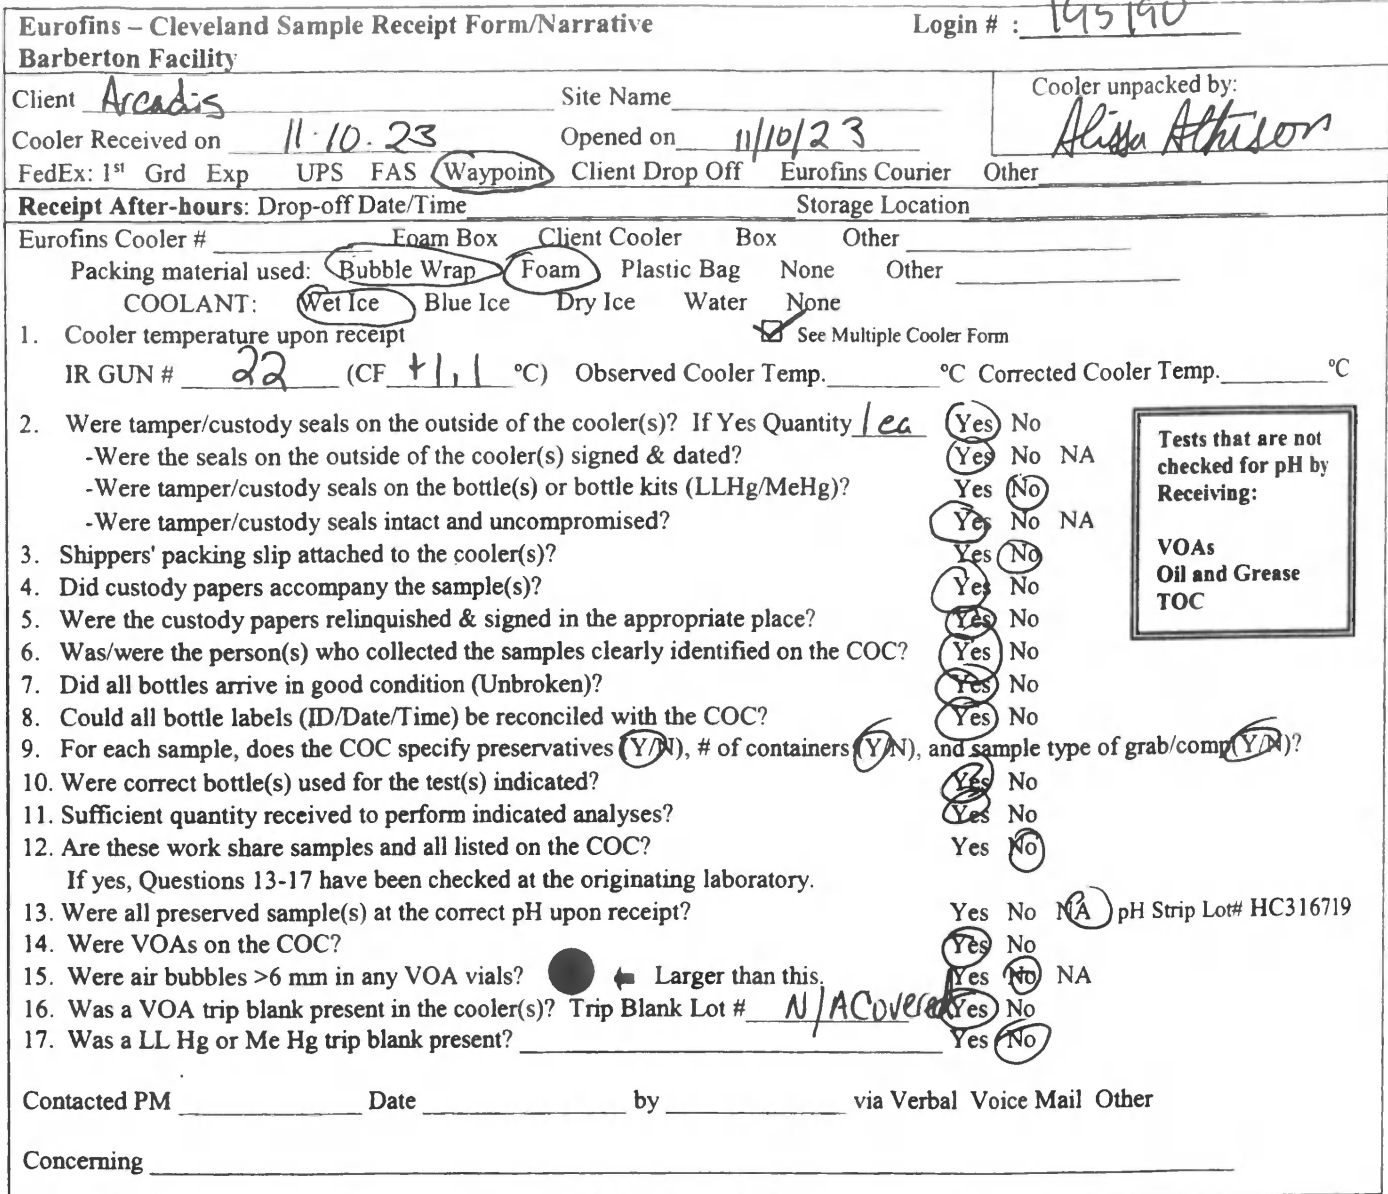 Eurofins – Cleveland Sample Receipt Form/Narrative Login # : 195190
Barberton Facility
Client Arcadis Site Name Cooler unpacked by:
Cooler Received on 11.10.23 Opened on 11/10/23 Alissa Athison
FedEx: 1st Grd Exp UPS FAS Waypoint Client Drop Off Eurofins Courier Other
Receipt After-hours: Drop-off Date/Time Storage Location
Eurofins Cooler # Foam Box Client Cooler Box Other
Packing material used: Bubble Wrap Foam Plastic Bag None Other
COOLANT: Wet Ice Blue Ice Dry Ice Water None
1. Cooler temperature upon receipt ☑ See Multiple Cooler Form
IR GUN # 22 (CF +1.1 °C) Observed Cooler Temp. °C Corrected Cooler Temp. °C
2. Were tamper/custody seals on the outside of the cooler(s)? If Yes Quantity 1 ea Yes No
-Were the seals on the outside of the cooler(s) signed & dated? Yes No NA
-Were tamper/custody seals on the bottle(s) or bottle kits (LLHg/MeHg)? Yes No
-Were tamper/custody seals intact and uncompromised? Yes No NA
3. Shippers' packing slip attached to the cooler(s)? Yes No
4. Did custody papers accompany the sample(s)? Yes No
5. Were the custody papers relinquished & signed in the appropriate place? Yes No
6. Was/were the person(s) who collected the samples clearly identified on the COC? Yes No
7. Did all bottles arrive in good condition (Unbroken)? Yes No
8. Could all bottle labels (ID/Date/Time) be reconciled with the COC? Yes No
Tests that are not
checked for pH by
Receiving:
VOAs
Oil and Grease
TOC
9. For each sample, does the COC specify preservatives (Y/N), # of containers (Y/N), and sample type of grab/comp(Y/N)?
10. Were correct bottle(s) used for the test(s) indicated? Yes No
11. Sufficient quantity received to perform indicated analyses? Yes No
12. Are these work share samples and all listed on the COC? Yes No
If yes, Questions 13-17 have been checked at the originating laboratory.
13. Were all preserved sample(s) at the correct pH upon receipt? Yes No NA pH Strip Lot# HC316719
14. Were VOAs on the COC? Yes No
15. Were air bubbles >6 mm in any VOA vials? Larger than this. Yes No NA
16. Was a VOA trip blank present in the cooler(s)? Trip Blank Lot # N/A Covered Yes No
17. Was a LL Hg or Me Hg trip blank present? Yes No
Contacted PM Date by via Verbal Voice Mail Other
Concerning